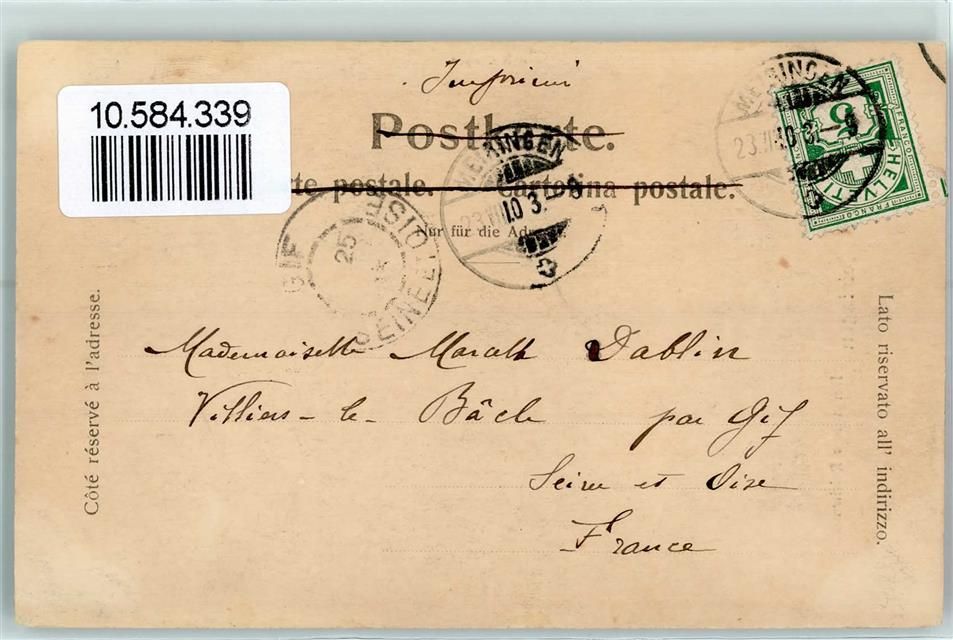 Imprimé
10.584.339
Postkarte.
te postale. Cartolina postale.
Nur für die Adresse
MEIRINGEN
23.VII.03.-9
MEIRINGEN
23.VII.03.-9
FRANCO
5
HELVETIA
FRANCO
GIF
25
SEINE ET OISE
Côté réservé à l'adresse.
Lato riservato all' indirizzo.
Mademoiselle Dablin
Villiers-le-Bâcle par Gif
Seine et Oise
France